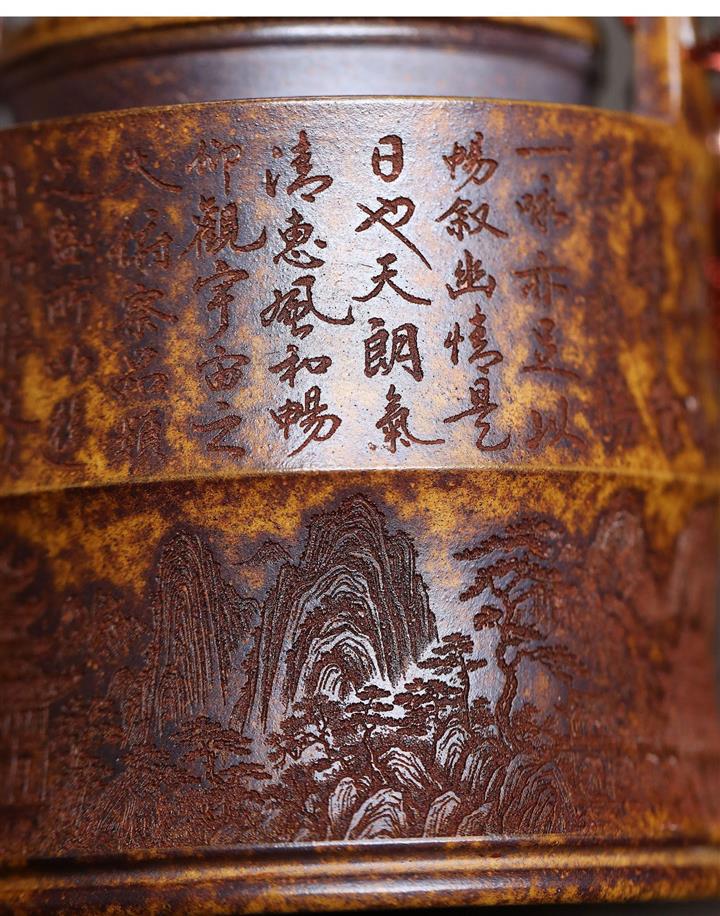 一咏亦足以
暢叙幽情是
日也天朗氣
清惠風和暢
仰觀宇宙之
大俯察品類
之盛所以遊